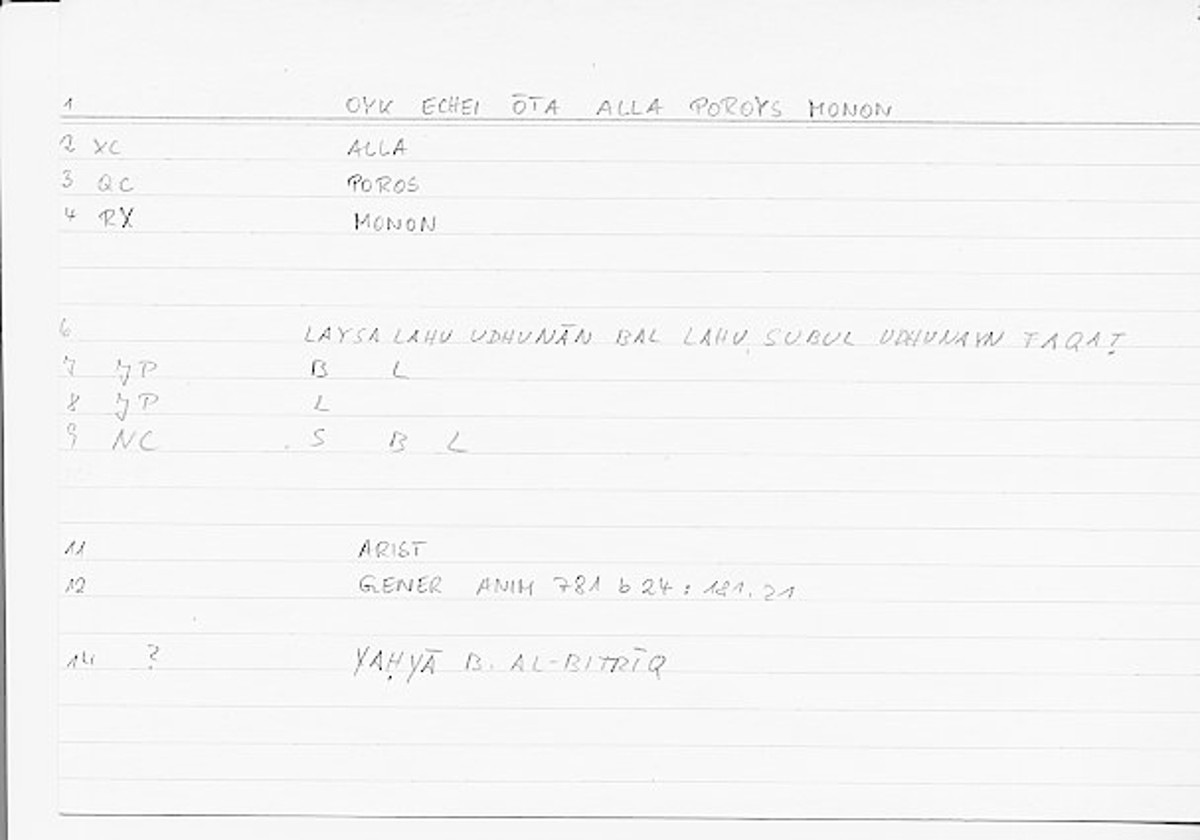 1 OYK ECHEI ŌTA ALLA POROYS MONON
2 XC ALLA
3 QC POROS
4 RX MONON
6 LAYSA LAHU UDHUNĀN BAL LAHU SUBUL UDHUNAYN FAQAṬ
7 JP B L
8 JP L
9 NC S B L
11 ARIST
12 GENER ANIM 781 b 24 : 181.21
14 ? YAḤYĀ B. AL-BITRĪQ